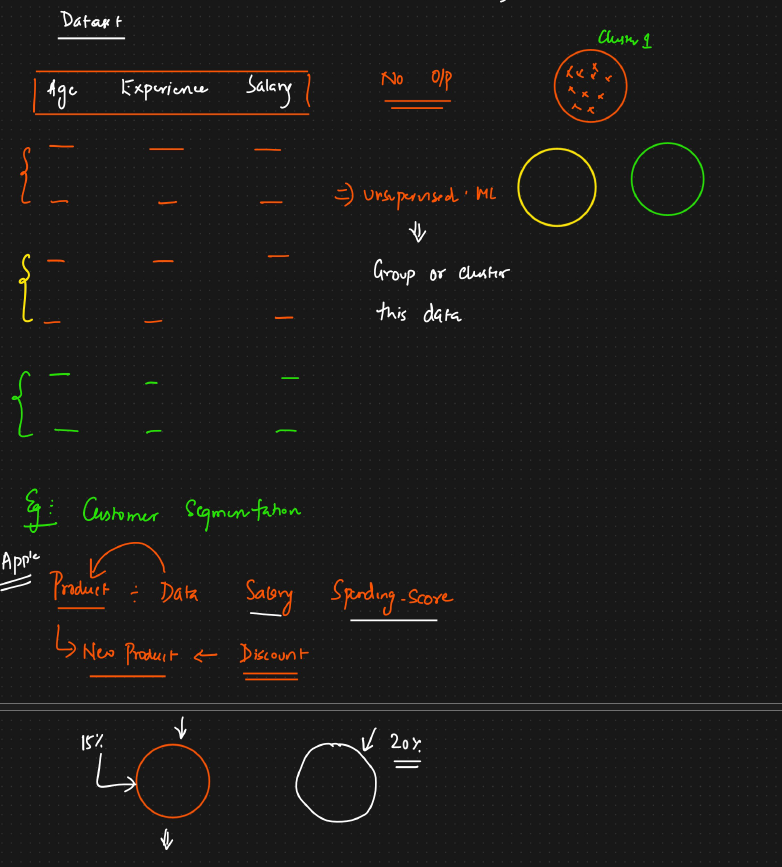 Dataset
Age Experience Salary
No O/P
Cluster 1
=) Unsupervised ML
Group or cluster
this data
Eg: Customer Segmentation
Apple
Product : Data Salary Spending-Score
New Product ← Discount
15%
20%